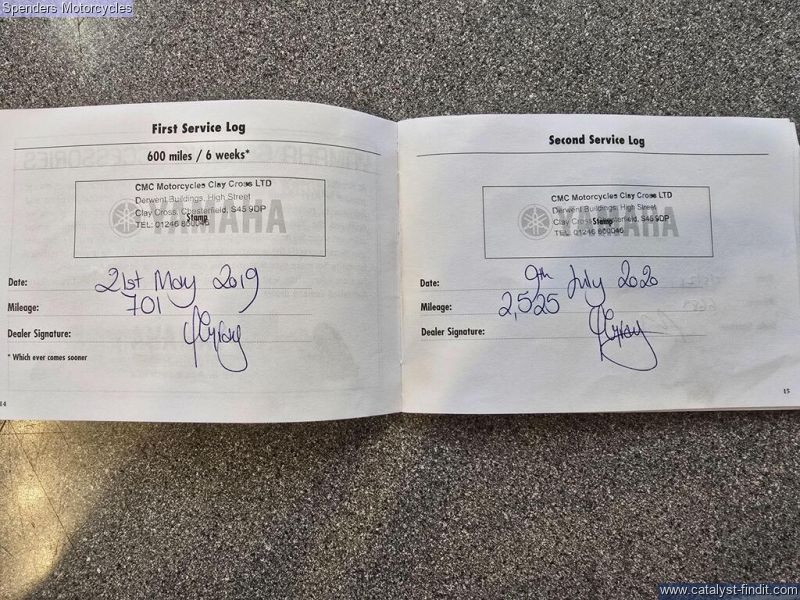 Spenders Motorcycles
First Service Log
600 miles / 6 weeks*
CMC Motorcycles Clay Cross LTD
Derwent Buildings, High Street
Clay Cross, Chesterfield, S45 9DP
Stamp
TEL: 01246 860046
Date: 21st May 2019
Mileage: 701
Dealer Signature:
* Which ever comes sooner
14
Second Service Log
CMC Motorcycles Clay Cross LTD
Derwent Buildings, High Street
Clay Cross, Chesterfield, S45 9DP
Stamp
TEL: 01246 860046
Date: 9th July 2020
Mileage: 2,525
Dealer Signature:
15
www.catalyst-findit.com